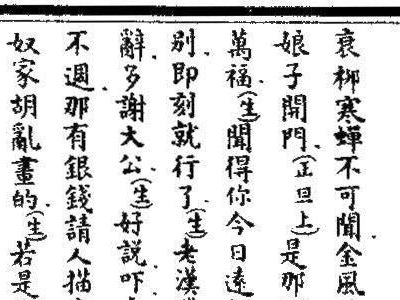 衰柳寒蟬不可聞金風
娘子開門(正旦上)是那
萬福(生)聞得你今日遠
別即刻就行了(生)老漢
辭多謝大公(生)好說吓
不週那有銀錢請人描
奴家胡亂畫的(生)若是